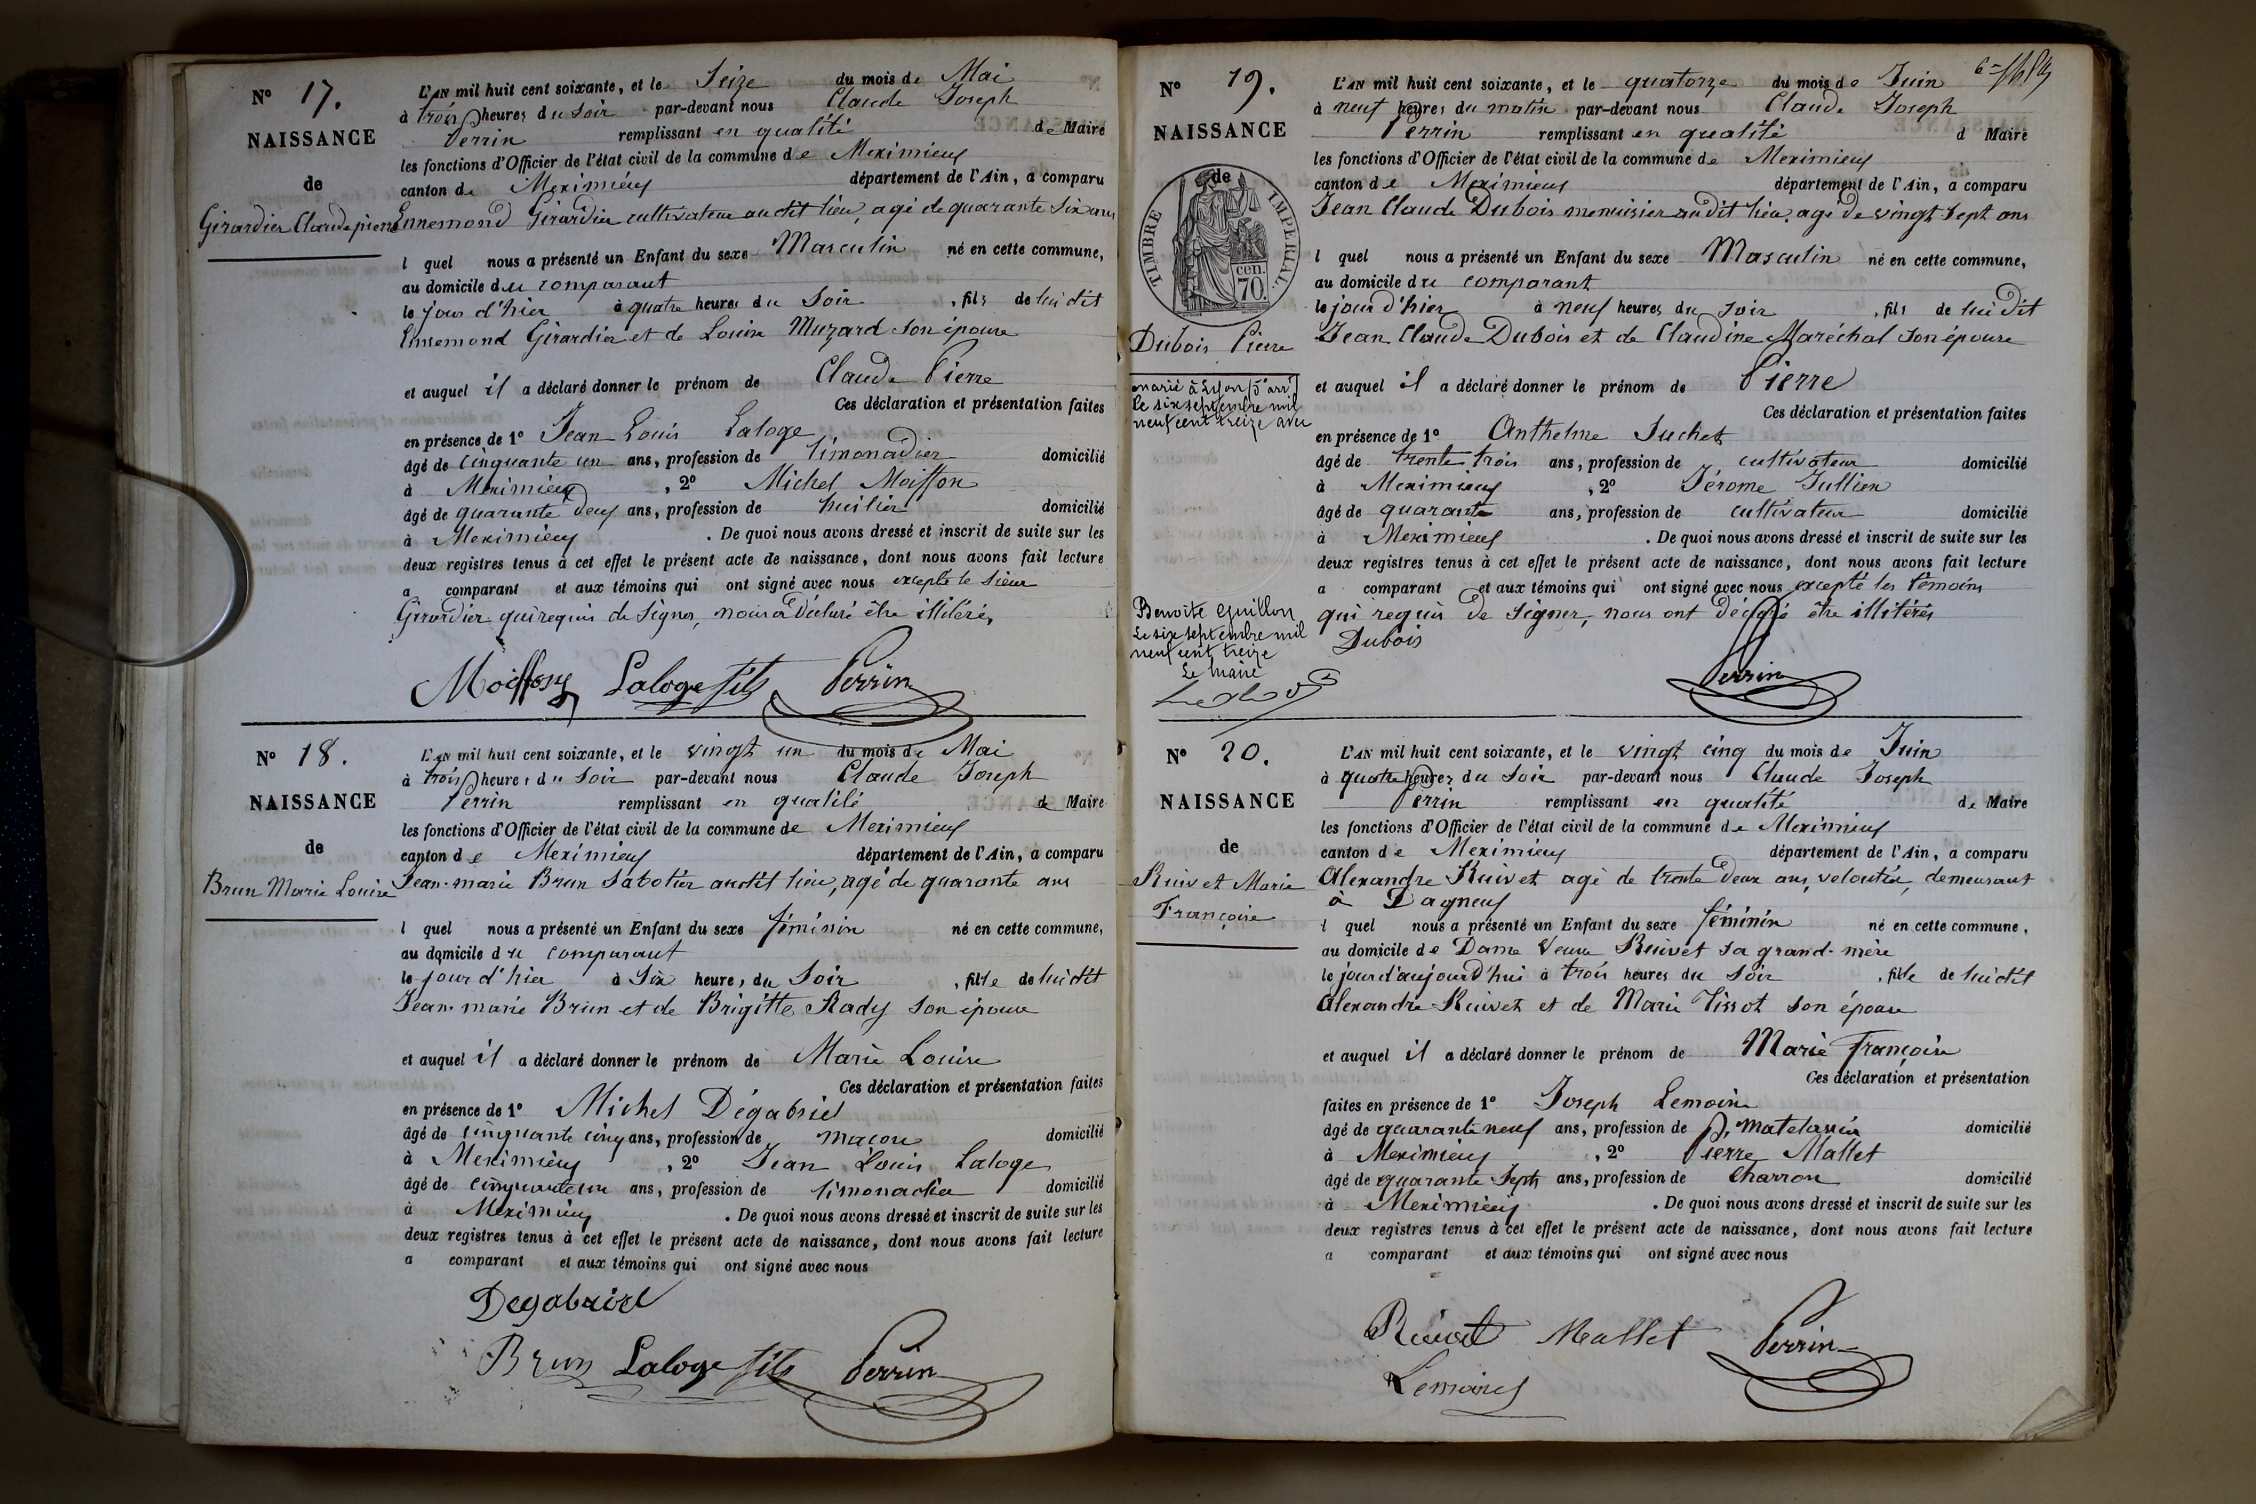 N° 17.
NAISSANCE
de
Girardier Claude pierre
L'AN mil huit cent soixante, et le Seize du mois de Mai
à trois heures du soir par-devant nous Claude Joseph
Perrin remplissant en qualité de Maire
les fonctions d'Officier de l'état civil de la commune de Meximieux
canton de Meximieux département de l'Ain, a comparu
Ennemond Girardier cultivateur audit lieu, agé de quarante six ans
l quel nous a présenté un Enfant du sexe Masculin né en cette commune,
au domicile du comparant
le jour d'hier à quatre heures du Soir, fils de lui dit
Ennemond Girardier et de Louise Muzard son épouse
et auquel il a déclaré donner le prénom de Claude Pierre
Ces déclaration et présentation faites
en présence de 1° Jean Louis Laloge
âgé de cinquante un ans, profession de limonadier domicilié
à Meximieux, 2° Michel Moiffon
âgé de quarante deux ans, profession de huilier domicilié
à Meximieux. De quoi nous avons dressé et inscrit de suite sur les
deux registres tenus à cet effet le présent acte de naissance, dont nous avons fait lecture
a comparant et aux témoins qui ont signé avec nous excepté le Sieur
Girardier qui requis de signer, nous a déclaré être illitéré.
Moiffon Laloge fils Perrin
N° 18.
NAISSANCE
de
Brun Marie Louise
L'AN mil huit cent soixante, et le vingt un du mois de Mai
à trois heures du Soir par-devant nous Claude Joseph
Perrin remplissant en qualité de Maire
les fonctions d'Officier de l'état civil de la commune de Meximieux
canton de Meximieux département de l'Ain, a comparu
Jean-marie Brun Sabotier audit lieu, agé de quarante ans
l quel nous a présenté un Enfant du sexe féminin né en cette commune,
au domicile du comparant
le jour d'hier à Six heures du Soir, fille de lui dit
Jean-marie Brun et de Brigitte Rady son épouse
et auquel il a déclaré donner le prénom de Marie Louise
Ces déclaration et présentation faites
en présence de 1° Michel Dégabriel
âgé de cinquante cinq ans, profession de macon domicilié
à Meximieux, 2° Jean Louis Laloge
âgé de cinquante un ans, profession de limonadier domicilié
à Meximieux. De quoi nous avons dressé et inscrit de suite sur les
deux registres tenus à cet effet le présent acte de naissance, dont nous avons fait lecture
a comparant et aux témoins qui ont signé avec nous
Degabriel
Brun Laloge fils Perrin
N° 19.
NAISSANCE
de
TIMBRE IMPERIAL
cen.
70.
Dubois Pierre
marié à Lyon (3e arrt)
le six septembre mil
neuf cent treize avec
Benoite Guillon
Le six septembre mil
neuf cent treize
Le maire
L'AN mil huit cent soixante, et le quatorze du mois de Juin
à neuf heures du matin par-devant nous Claude Joseph
Perrin remplissant en qualité d Maire
les fonctions d'Officier de l'état civil de la commune de Meximieux
canton de Meximieux département de l'Ain, a comparu
Jean Claude Dubois menuisier audit lieu, agé de vingt sept ans
l quel nous a présenté un Enfant du sexe Masculin né en cette commune,
au domicile du comparant
le jour d'hier à neuf heures du soir, fils de lui dit
Jean Claude Dubois et de Claudine Maréchal son épouse
et auquel il a déclaré donner le prénom de Pierre
Ces déclaration et présentation faites
en présence de 1° Anthelme Juchet
âgé de trente trois ans, profession de cultivateur domicilié
à Meximieux, 2° Jérome Jullien
âgé de quarante ans, profession de cultivateur domicilié
à Meximieux. De quoi nous avons dressé et inscrit de suite sur les
deux registres tenus à cet effet le présent acte de naissance, dont nous avons fait lecture
a comparant et aux témoins qui ont signé avec nous excepté les témoins
qui requis de signer, nous ont déclaré être illitérés
Dubois
Perrin
N° 20.
NAISSANCE
de
Ruivet Marie
Françoise
L'AN mil huit cent soixante, et le vingt cinq du mois de Juin
à quatre heures du Soir par-devant nous Claude Joseph
Perrin remplissant en qualité de Maire
les fonctions d'Officier de l'état civil de la commune de Meximieux
canton de Meximieux département de l'Ain, a comparu
Alexandre Ruivet agé de trente deux ans, veloutier, demeurant
à Dagneux
l quel nous a présenté un Enfant du sexe féminin né en cette commune,
au domicile de Dame Veuve Ruivet sa grand-mère
le jour d'aujourd'hui à trois heures du Soir, fille de lui dit
Alexandre Ruivet et de Marie Tissot son épouse
et auquel il a déclaré donner le prénom de Marie Françoise
Ces déclaration et présentation
faites en présence de 1° Joseph Lemoine
âgé de quarante neuf ans, profession de matelassier domicilié
à Meximieux, 2° Pierre Mallet
âgé de quarante Sept ans, profession de Charron domicilié
à Meximieux. De quoi nous avons dressé et inscrit de suite sur les
deux registres tenus à cet effet le présent acte de naissance, dont nous avons fait lecture
a comparant et aux témoins qui ont signé avec nous
Ruivet Mallet Perrin